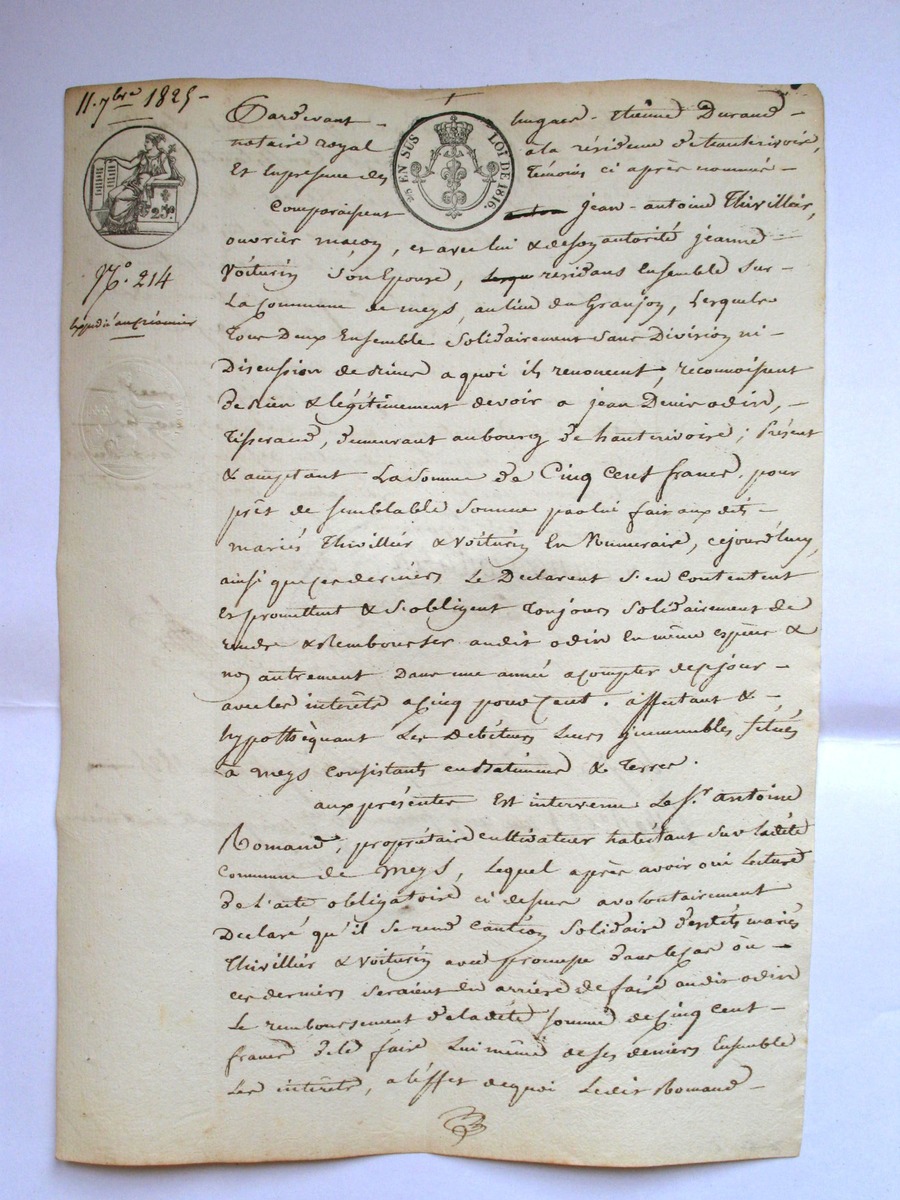 11. 7bre 1825 -
Pardevant - hugues - Etienne Durand -
notaire royal a la residence d'hauterivoire,
Et en presence des Témoins ci après nommés -
EN SUS LOI DE 1816.
25c
Comparaissent jean - antoine Thivillier,
N.° 214
ouvrier maçon, et avec lui & de son autorité jeanne -
Voiturin son Epouse, residans Ensemble sur -
La Commune de meys, au lieu du Granjon, Lesquels
Tous Deux Ensemble Solidairement Sans Division ni -
Discussion de biens a quoi ils renoncent, reconnoissent
de bien & légitimement devoir a jean Denis odin, -
Tisserand, demeurant au bourg de hauterivoire ; Présent
& acceptant La Somme de Cinq Cent francs, pour
prêt de semblable Somme par lui fait aux dits -
mariés Thivillier & Voiturin En Numeraire, cejourd'huy,
ainsi que ces derniers Le Declarent s'en Contentent
Et promettent & s'obligent Toujours Solidairement de
rendre & Rembourser audit odin En même espèces &
non autrement Dans une année a compter de ce jour -
avec les interêts a Cinq pour Cent. affectant & -
hypothèquant Les Débiteurs Leurs jmmeubles Situés
à meys Consistants en Batiments & Terres.
aux présentes Est intervenu Le Sr. antoine
Romand, propriétaire cultivateur habitant sur ladite
Commune de Meys, Lequel après avoir oui Lecture
de L'acte obligatoire ci dessus a volontairement
Declaré qu'il se rend Caution Solidaire desdits mariés
Thivillier & Voiturin avec promesse dans le cas où -
ces derniers seraient En arriere de faire audit odin
Le remboursement de la dite Somme de Cinq Cent -
francs de le faire Lui même de ses deniers Ensemble
Les interêts, a L'effet de quoi Ledit Romand -